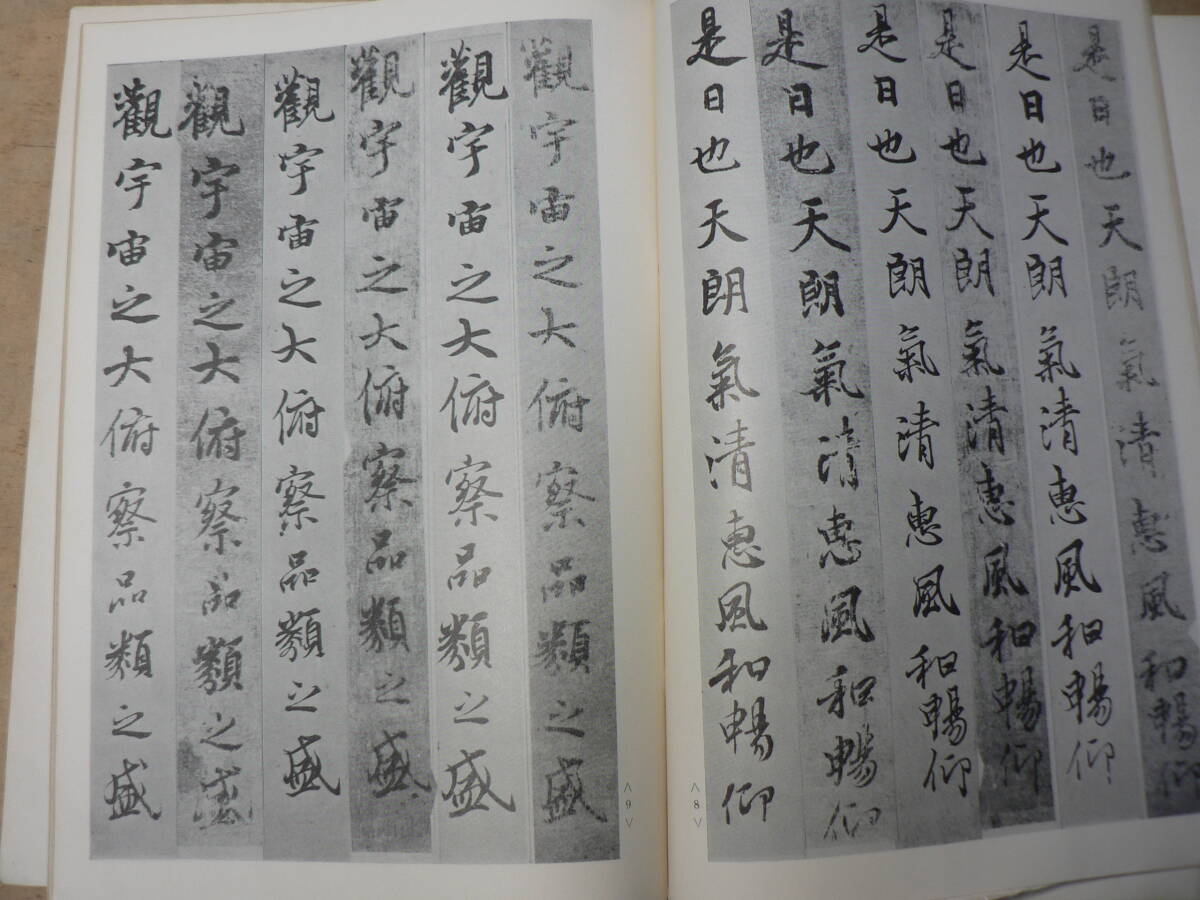 是日也天朗氣清惠風和暢仰
是日也天朗氣清惠風和暢仰
是日也天朗氣清惠風和暢仰
是日也天朗氣清惠風和暢仰
是日也天朗氣清惠風和暢仰
是日也天朗氣清惠風和暢仰
<8>
觀宇宙之大俯察品類之盛
觀宇宙之大俯察品類之盛
觀宇宙之大俯察品類之盛
觀宇宙之大俯察品類之盛
觀宇宙之大俯察品類之盛
觀宇宙之大俯察品類之盛
<9>